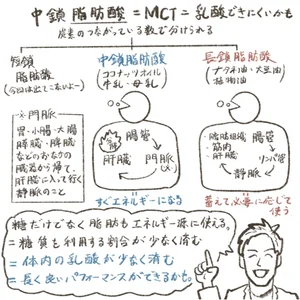 中鎖脂肪酸=MCT=乳酸できにくいかも
炭素のつながっている数で分けられる
短鎖
脂肪酸
(今回は出てこないよー)
中鎖脂肪酸
(ココナッツオイル
牛乳・母乳)
長鎖脂肪酸
(ナタネ油・大豆油
植物油)
※門脈
胃・小腸・大腸
膵臓・脾臓
などのおなかの
臓器から帰て
肝臓に入って行く
静脈のこと
腸管
肝臓
門脈
(※)
すぐエネルギーになる
・脂肪組織
・筋肉
・肝臓
腸管
リンパ管
静脈
蓄えて必要に応じて
使う
糖だけでなく脂肪もエネルギー源に使える。
=糖質も利用する割合が少なく済む
=体内の乳酸が少なく済む
=長く良いパフォーマンスができるかも。